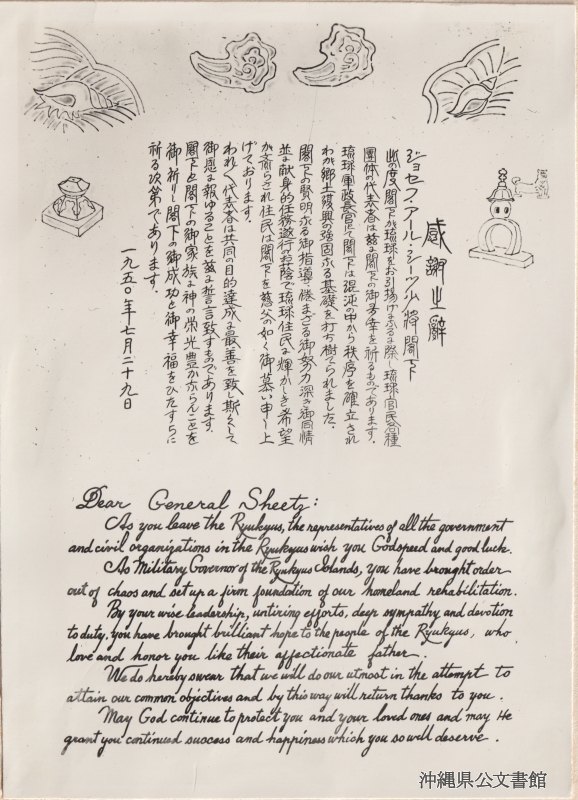 感謝之辭
ジョセフ・アール・シーツ少將閣下
此の度閣下が琉球をお引揚げになる際、琉球官民各種
團体の代表者は茲に閣下の御多幸を祈るものであります。
琉球軍政長官として閣下は混沌の中から秩序を確立され
わが郷土復興の強固なる基礎を打ち樹てられました。
閣下の賢明なる御指導、倦まざる御努力深き御同情
並に献身的任務遂行のお蔭で琉球住民に輝かしき希望
が齎らされ住民は閣下を慈父の如く御慕い申し上
げております。
われ〱代表者は共同の目的達成に最善を致し斯くして
御恩に報ゆることを茲に誓言致すものであります。
閣下と閣下の御家族に神の栄光豊かならんことを
御祈りし閣下の御成功と御幸福をひたすらに
祈る次第であります。
一九五〇年七月二十九日
Dear General Sheetz:
As you leave the Ryukyus, the representatives of all the government
and civil organizations in the Ryukyus wish you Godspeed and good luck.
As Military Governor of the Ryukyu Islands, you have brought order
out of chaos and set up a firm foundation of our homeland rehabilitation.
By your wise leadership, untiring efforts, deep sympathy, and devotion
to duty, you have brought brilliant hope to the people of the Ryukyus, who
love and honor you like their affectionate father.
We do hereby swear that we will do our utmost in the attempt to
attain our common objectives and by this way will return thanks to you.
May God continue to protect you and your loved ones and may He
grant you continued success and happiness which you so well deserve.
沖縄県公文書館